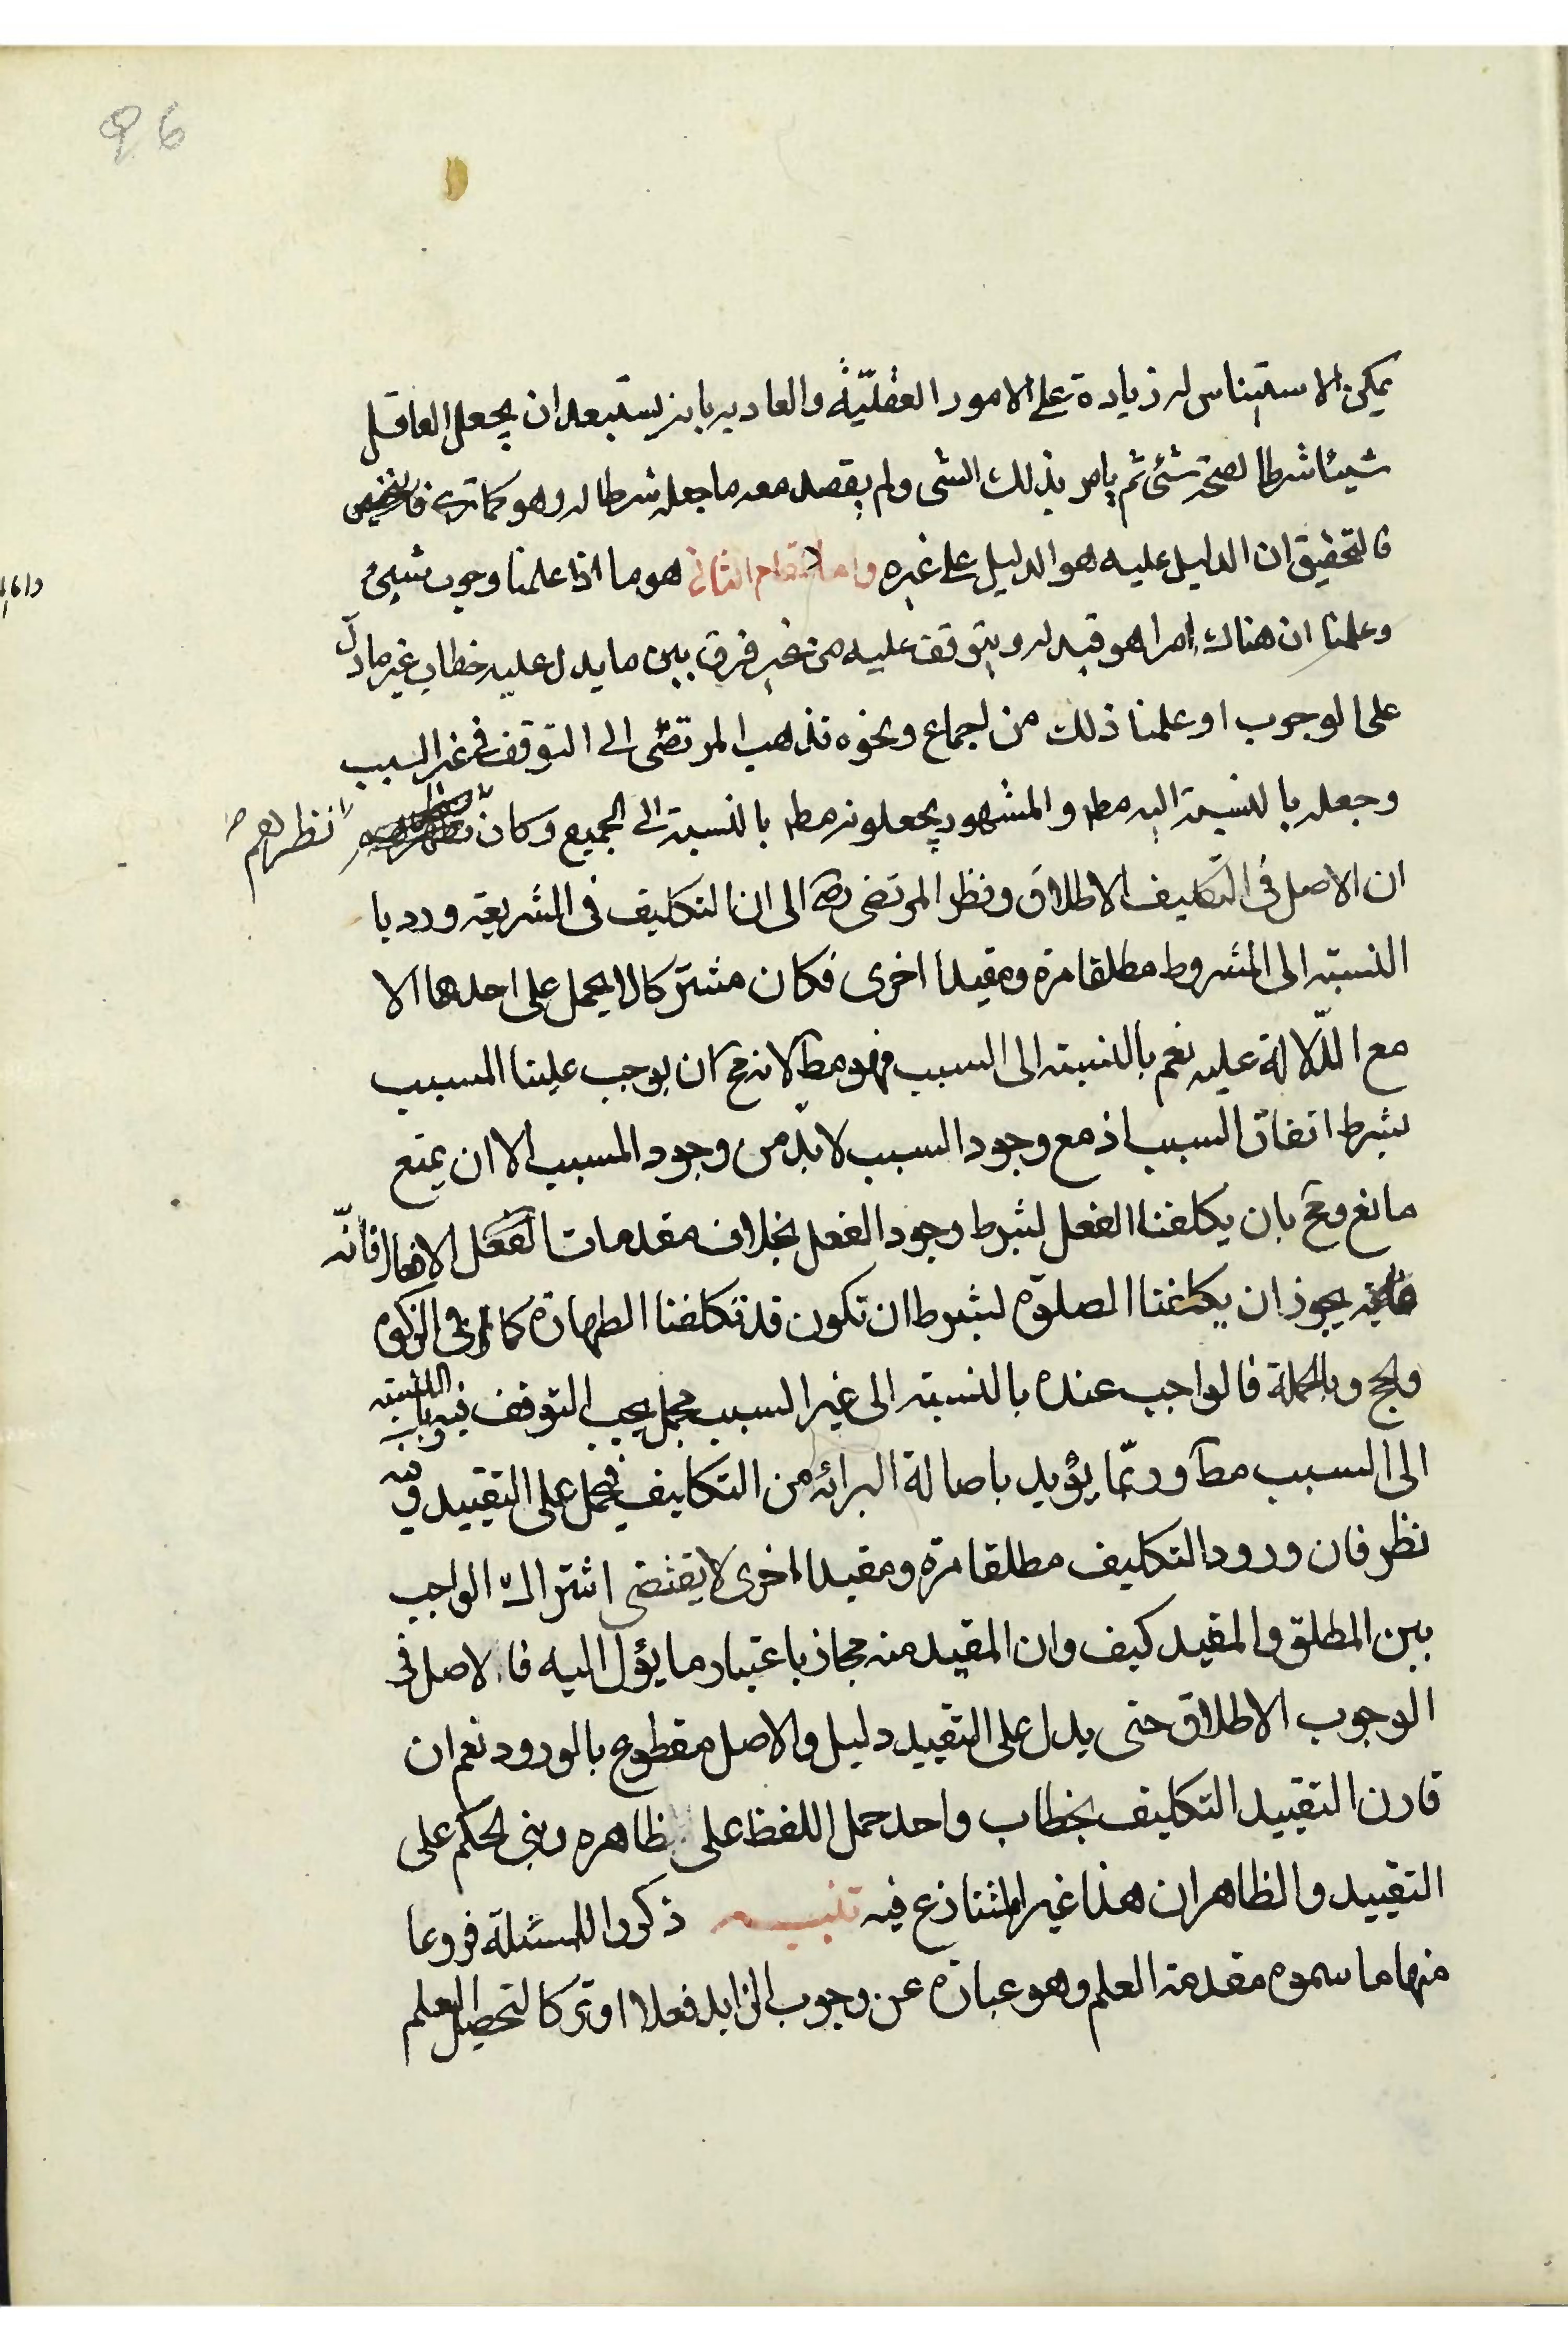 96
يمكن الاستيناس له زيادة على الامور العقليّة والعاديه بانه يستبعد ان يجعل العاقل
شيئا شرطا لصحة شئ ثم يامر بذلك الشى ولم يقصد معه ما جعله شرطا له وهو كما ترى
فالتحقيق ان الدليل عليه هو الدليل على غيره واما المقام الثانى هو ما اذا علمنا وجوب شيئ
وعلمنا ان هناك امرا هو قيد له ويتوقف عليه من غير فرق بين ما يدل عليه خطاب غير ما دلّ
على الوجوب او علمنا ذلك من اجماع ونحوه فذهب المرتضى الى التوقف فى غير السبب
وجعله بالنسبة اليه مط والمشهور يجعلونه مط بالنسبة الى الجميع وكانّ نظرهم
ان الاصل فى التكليف الاطلاق ونظر المرتضى ره الى ان التكليف فى الشريعة ورد با
النسبته الى المشروط مطلقا مرة ومقيدا اخرى فكان مشتركا لا يحمل على احدهما الا
مع الدّلالة عليه نعم بالنسبته الى السبب فهو مط لانه مح ان يوجب علينا المسبب
بشرط اتفاق السبب اذ مع وجود السبب لا بدّ من وجود المسبب الا ان يمنع
مانع ومح بان يكلفنا الفعل بشرط وجود الفعل بخلاف مقدمات الفعل الافعال فانّه
يجوز ان يكلفنا الصلوة بشرط ان تكون قد تكلفنا الطهارة كما فى الزكوة
والحج وبالجملة فالواجب عنده بالنسبته الى غير السبب مجمل يجب التوقف فيه وبالنسبته
الى السبب مط وربّما يؤيد باصالة البرائه من التكاليف فيحمل على التقييد وفيه
نظر فان ورود التكليف مطلقا مرة ومقيدا اخرى لا يقتضى اشتراك الواجب
بين المطلق والمقيد كيف وان المقيد منه مجاز باعتبار ما يؤل اليه فالاصل فى
الوجوب الاطلاق حتى يدل على التقييد دليل والاصل مقطوع بالورود نعم ان
قارن التقييد التكليف بخطاب واحد حمل اللفظ على ظاهره وبنى الحكم على
التقييد والظاهر ان هذا غير المتنازع فيه تنبيه ذكروا للمسئلة فروعا
منها ما سموه مقدمة العلم وهو عبارة عن وجوب الزايد فعلا او تركا لتحصيل العلم